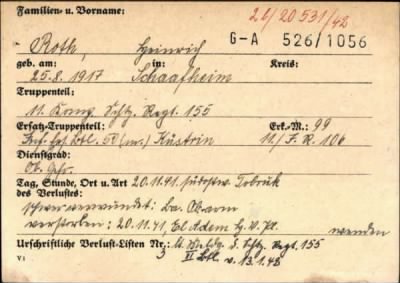 Familien- u. Vorname:
26/20 531/48
G-A 526/1056
Roth, Heinrich
geb. am: in: Kreis:
25.8.1917 Schaafheim
Truppenteil:
11. Komp. Schtz. Regt. 155
Ersatz-Truppenteil: Erk.-M.: 99
Inf. Ers. Btl. 50 (mot.) Küstrin 11/J.R. 106
Dienstgrad:
Ob. Gefr.
Tag, Stunde, Ort u. Art 20.11.41. südostw. Tobruk
des Verlustes:
schwer verwundet: Ob.arm
verstorben: 20.11.41, El Adem H.V.Pl.
wenden
Urschriftliche Verlust-Listen Nr.: Schtz. Regt. 155
3 II Btl. v. 13.1.48
V1